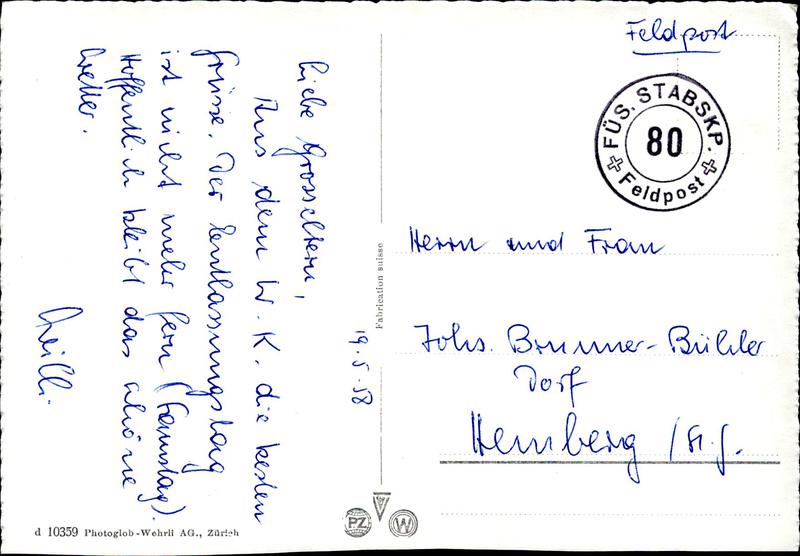 Liebe Grosseltern,
Aus dem W.K. die besten
Grüsse. Der Entlassungstag
ist nicht mehr fern (Samstag).
Hoffentlich bleibt das schöne
Wetter.
Willi.
19.5.58
Fabrication suisse
Feldpost
FÜS. STABSKP.
80
Feldpost
Herrn und Frau
Johs. Brunner-Bühler
Dorf
Hemberg / St. G.
d 10359 Photoglob-Wehrli AG., Zürich
PZ
W